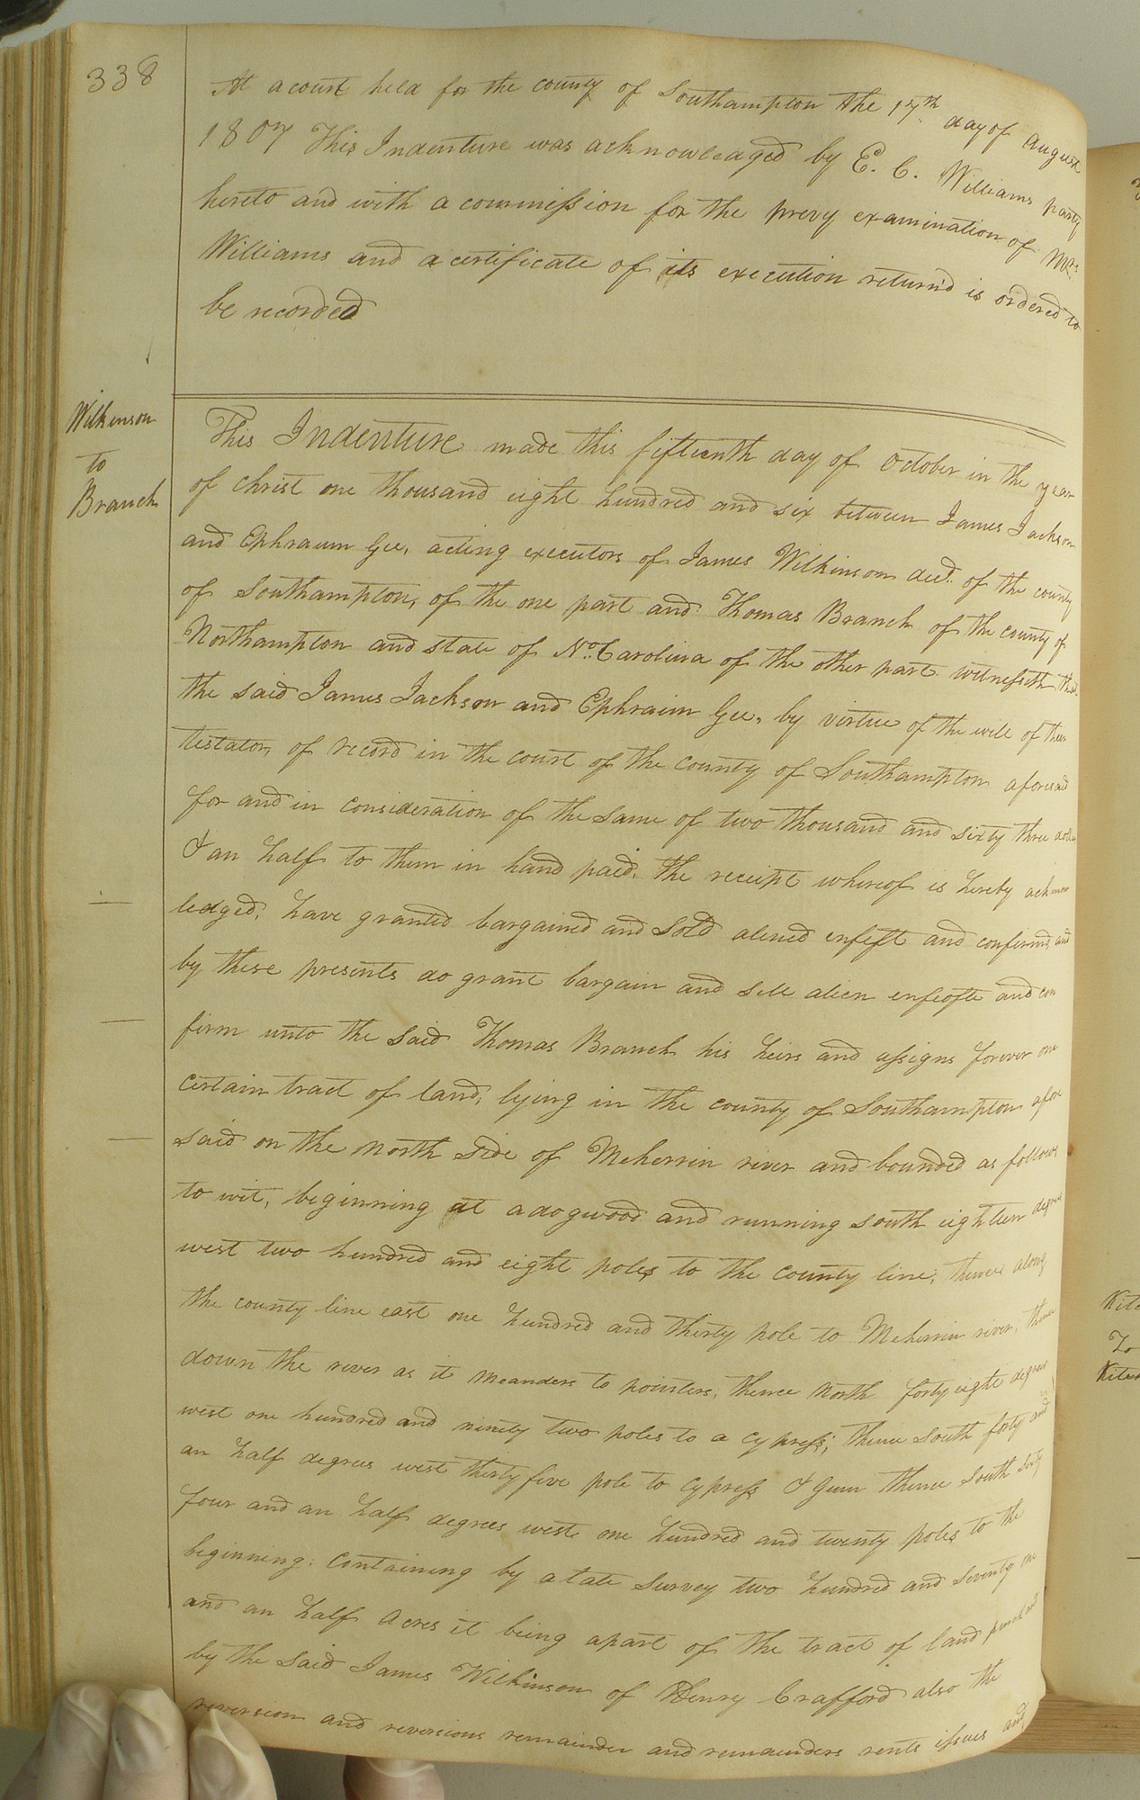 338
At a court held for the county of Southampton the 17th day of August
1807 This Indenture was acknowledged by E. C. Williams party
hereto and with a commission for the prevy examination of Mrs.
Williams and a certificate of its execution return'd is ordered to
be recorded
Wilkinson
to
Branch
This Indenture made this fifteenth day of October in the year
of christ one thousand eight hundred and six between James Jackson
and Ephraim Gee, acting executors of James Wilkinson decd. of the county
of Southampton, of the one part and Thomas Branch of the county of
Northampton and state of No. Carolina of the other part witnesseth that
the said James Jackson and Ephraim Gee, by virtue of the will of their
testator, of record in the court of the county of Southampton aforesaid
for and in consideration of the same of two thousand and sixty three dollars
& an half to them in hand paid, the receipt whereof is hereby acknow
ledged, have granted bargained and sold aliened enfeft and confirmed and
by these presents do grant bargain and sell alien enfeofte and con
firm unto the said Thomas Branch his heirs and assigns forever one
certain tract of land, lying in the county of Southampton afore
said on the north side of Meherrin river and bounded as follows
to wit, beginning at a dogwood and running south eighteen degrees
west two hundred and eight poles to the county line, thence along
the county line east one hundred and thirty pole to Meherrin river, thence
down the river as it meanders to pointers, thence north forty eight degrees
west one hundred and ninety two poles to a cypress, thence south forty and
an half degrees west thirty five pole to cypress & gum thence south sixty
four and an half degrees west one hundred and twenty poles to the
beginning: containing by a late survey two hundred and seventy one
and an half acres it being apart of the tract of land purchased
by the said James Wilkinson of Henry Crafford also the
reversion and reversions remainder and remainders rents issues and
Kite
To
Kitch